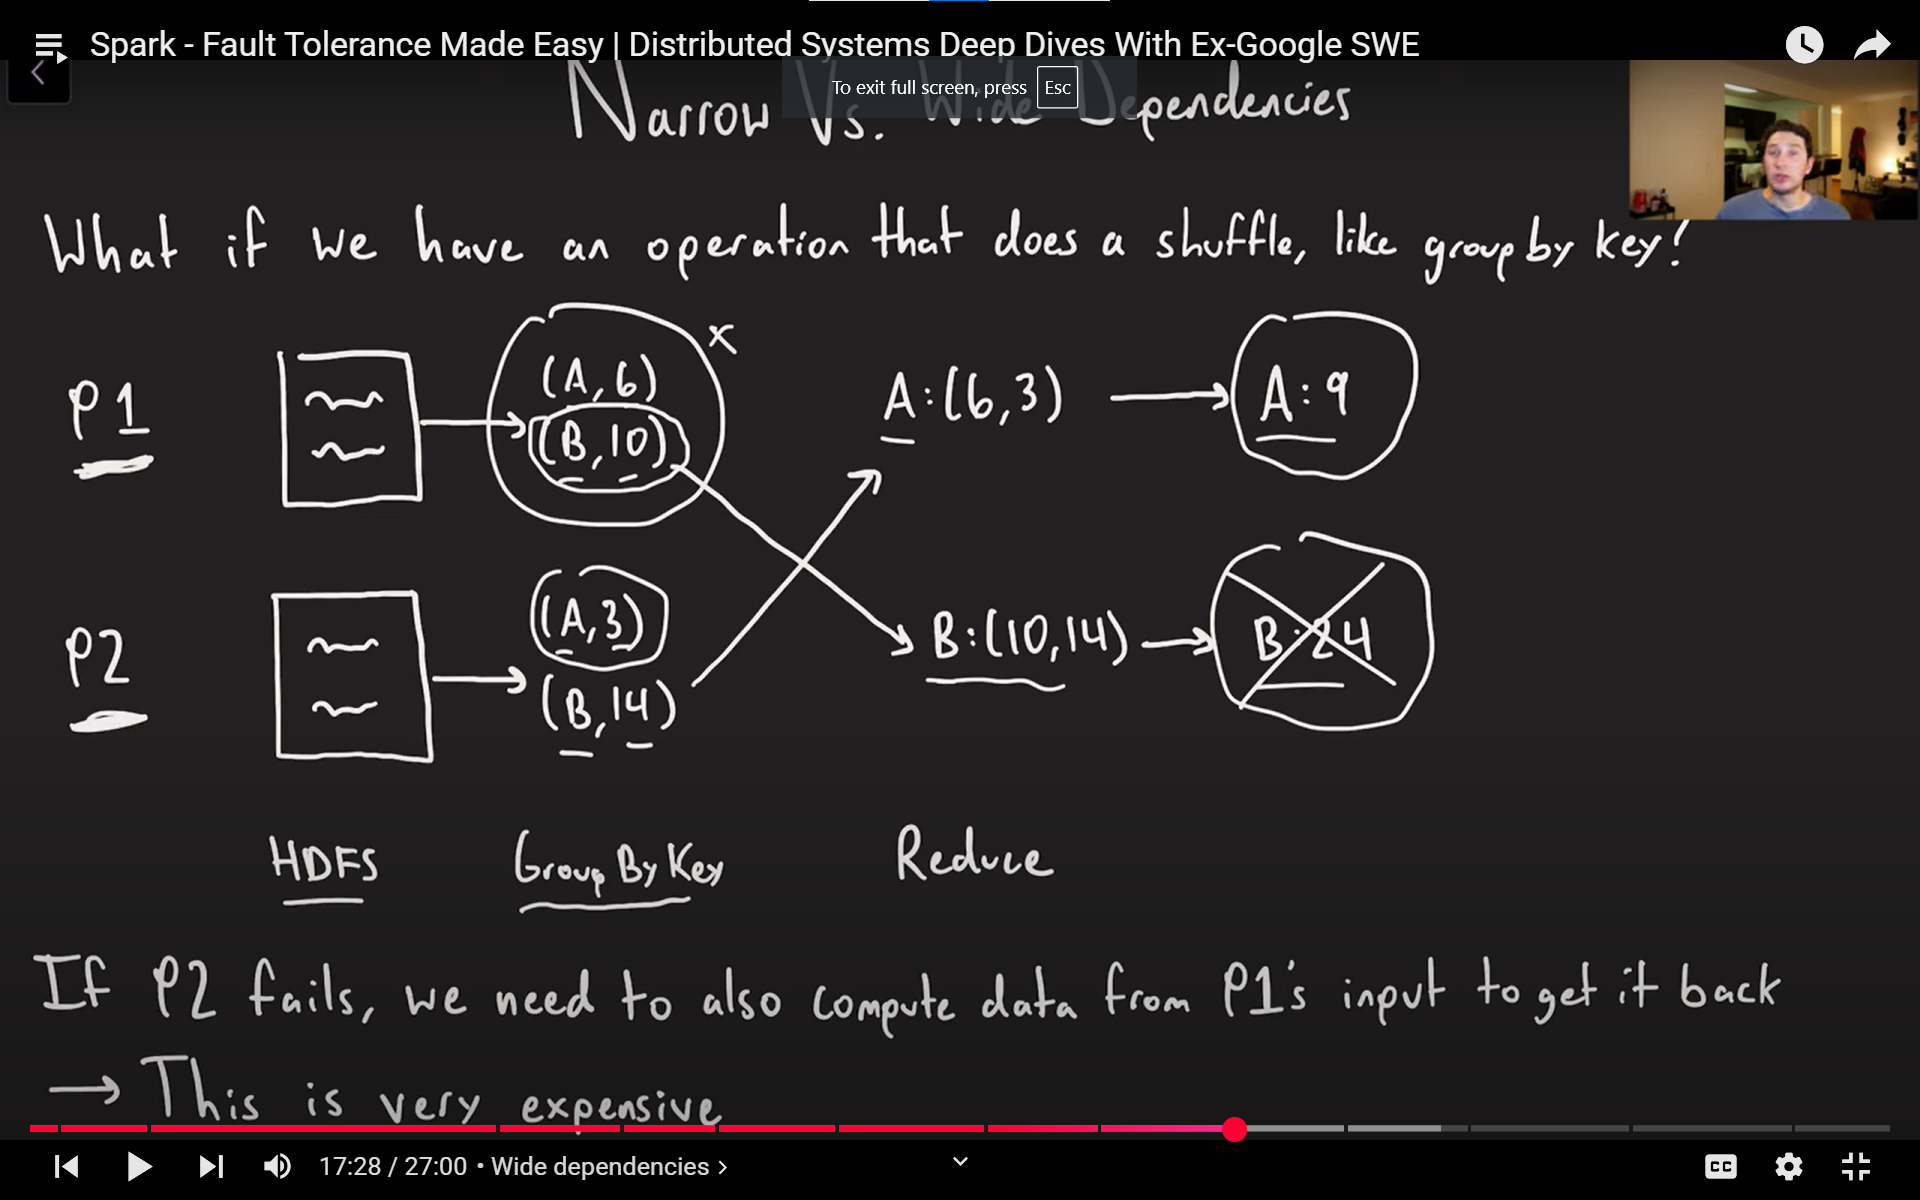 Spark - Fault Tolerance Made Easy | Distributed Systems Deep Dives With Ex-Google SWE
To exit full screen, press Esc
Narrow Vs. Wide Dependencies
What if we have an operation that does a shuffle, like group by key?
(A,6) x
P1 (B,10) A:(6,3) A:9
(A,3)
P2 (B,14) B:(10,14) B:24
HDFS Group By Key Reduce
If P2 fails, we need to also compute data from P1's input to get it back
→ This is very expensive
17:28 / 27:00 • Wide dependencies
CC